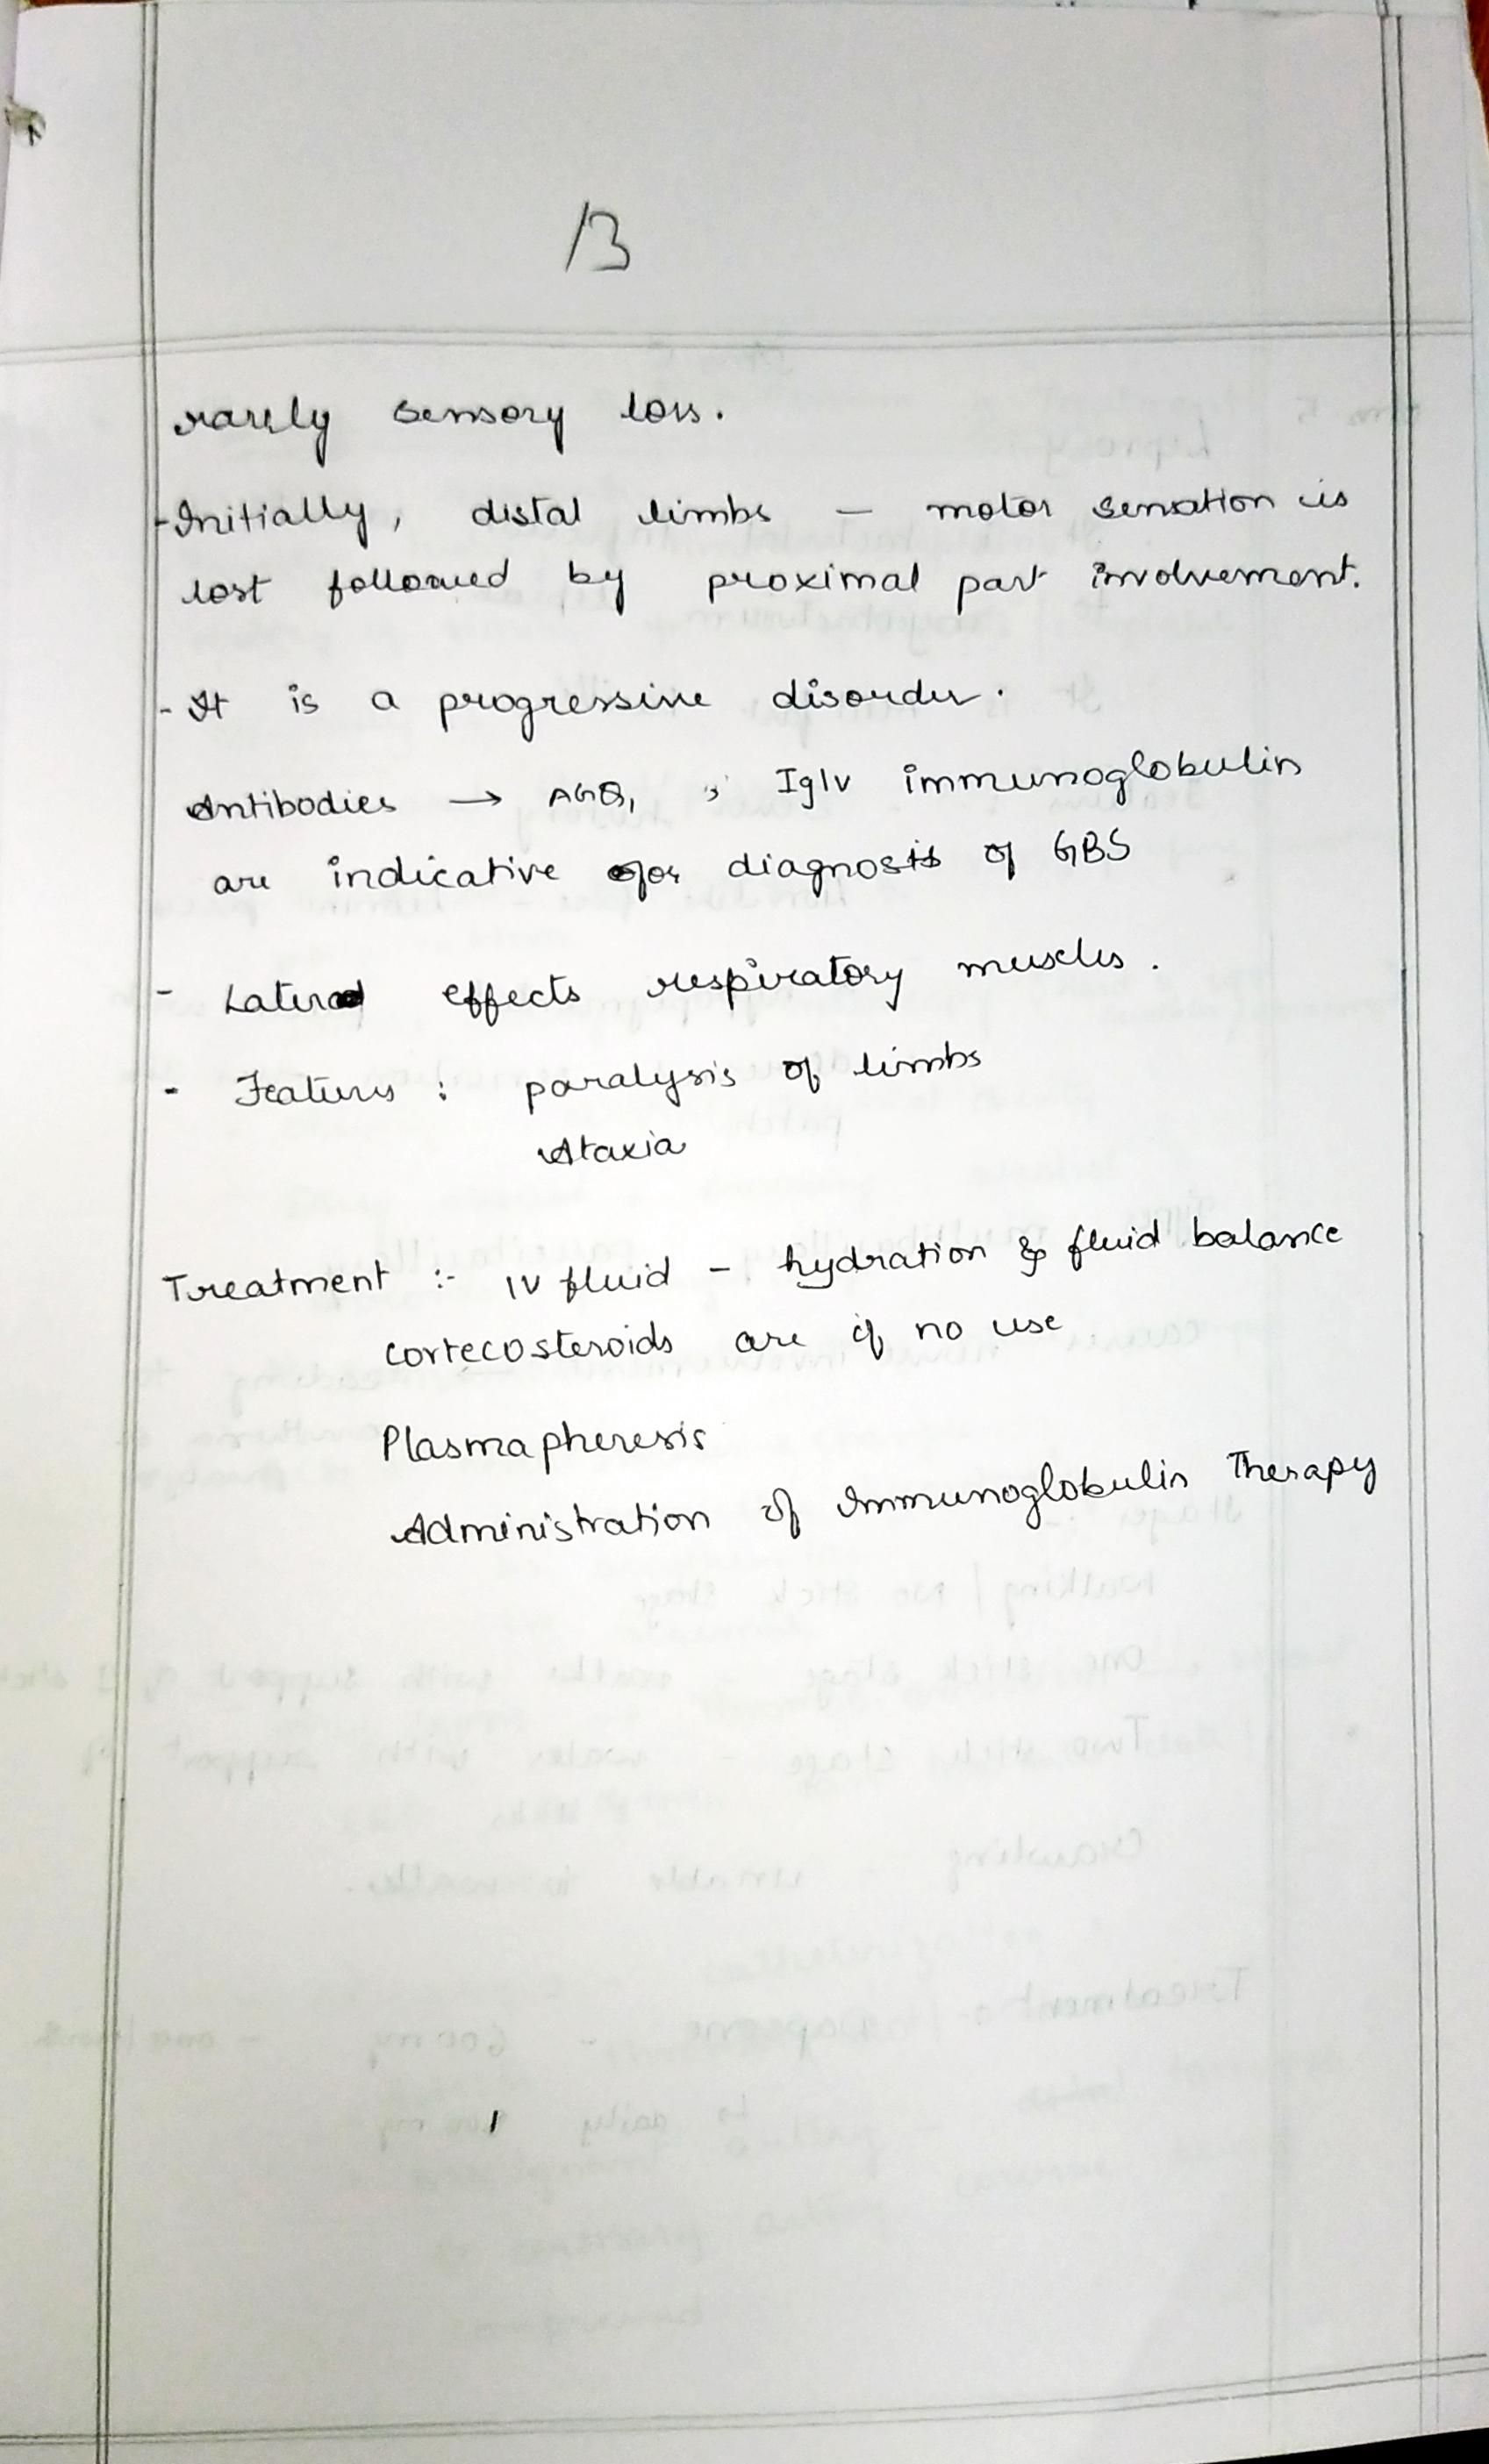 13
rarely sensory loss.
- Initially, distal limbs — motor sensation is
lost followed by proximal part involvement.
- It is a progressive disorder.
Antibodies → AGQ1, ; IgIV immunoglobulin
are indicative for diagnosis of GBS
- Later effects respiratory muscles.
- Features : paralysis of limbs
Ataxia
Treatment :- IV fluid - hydration & fluid balance
cortecosteroids are of no use
Plasmapheresis
Administration of Immunoglobulin Therapy